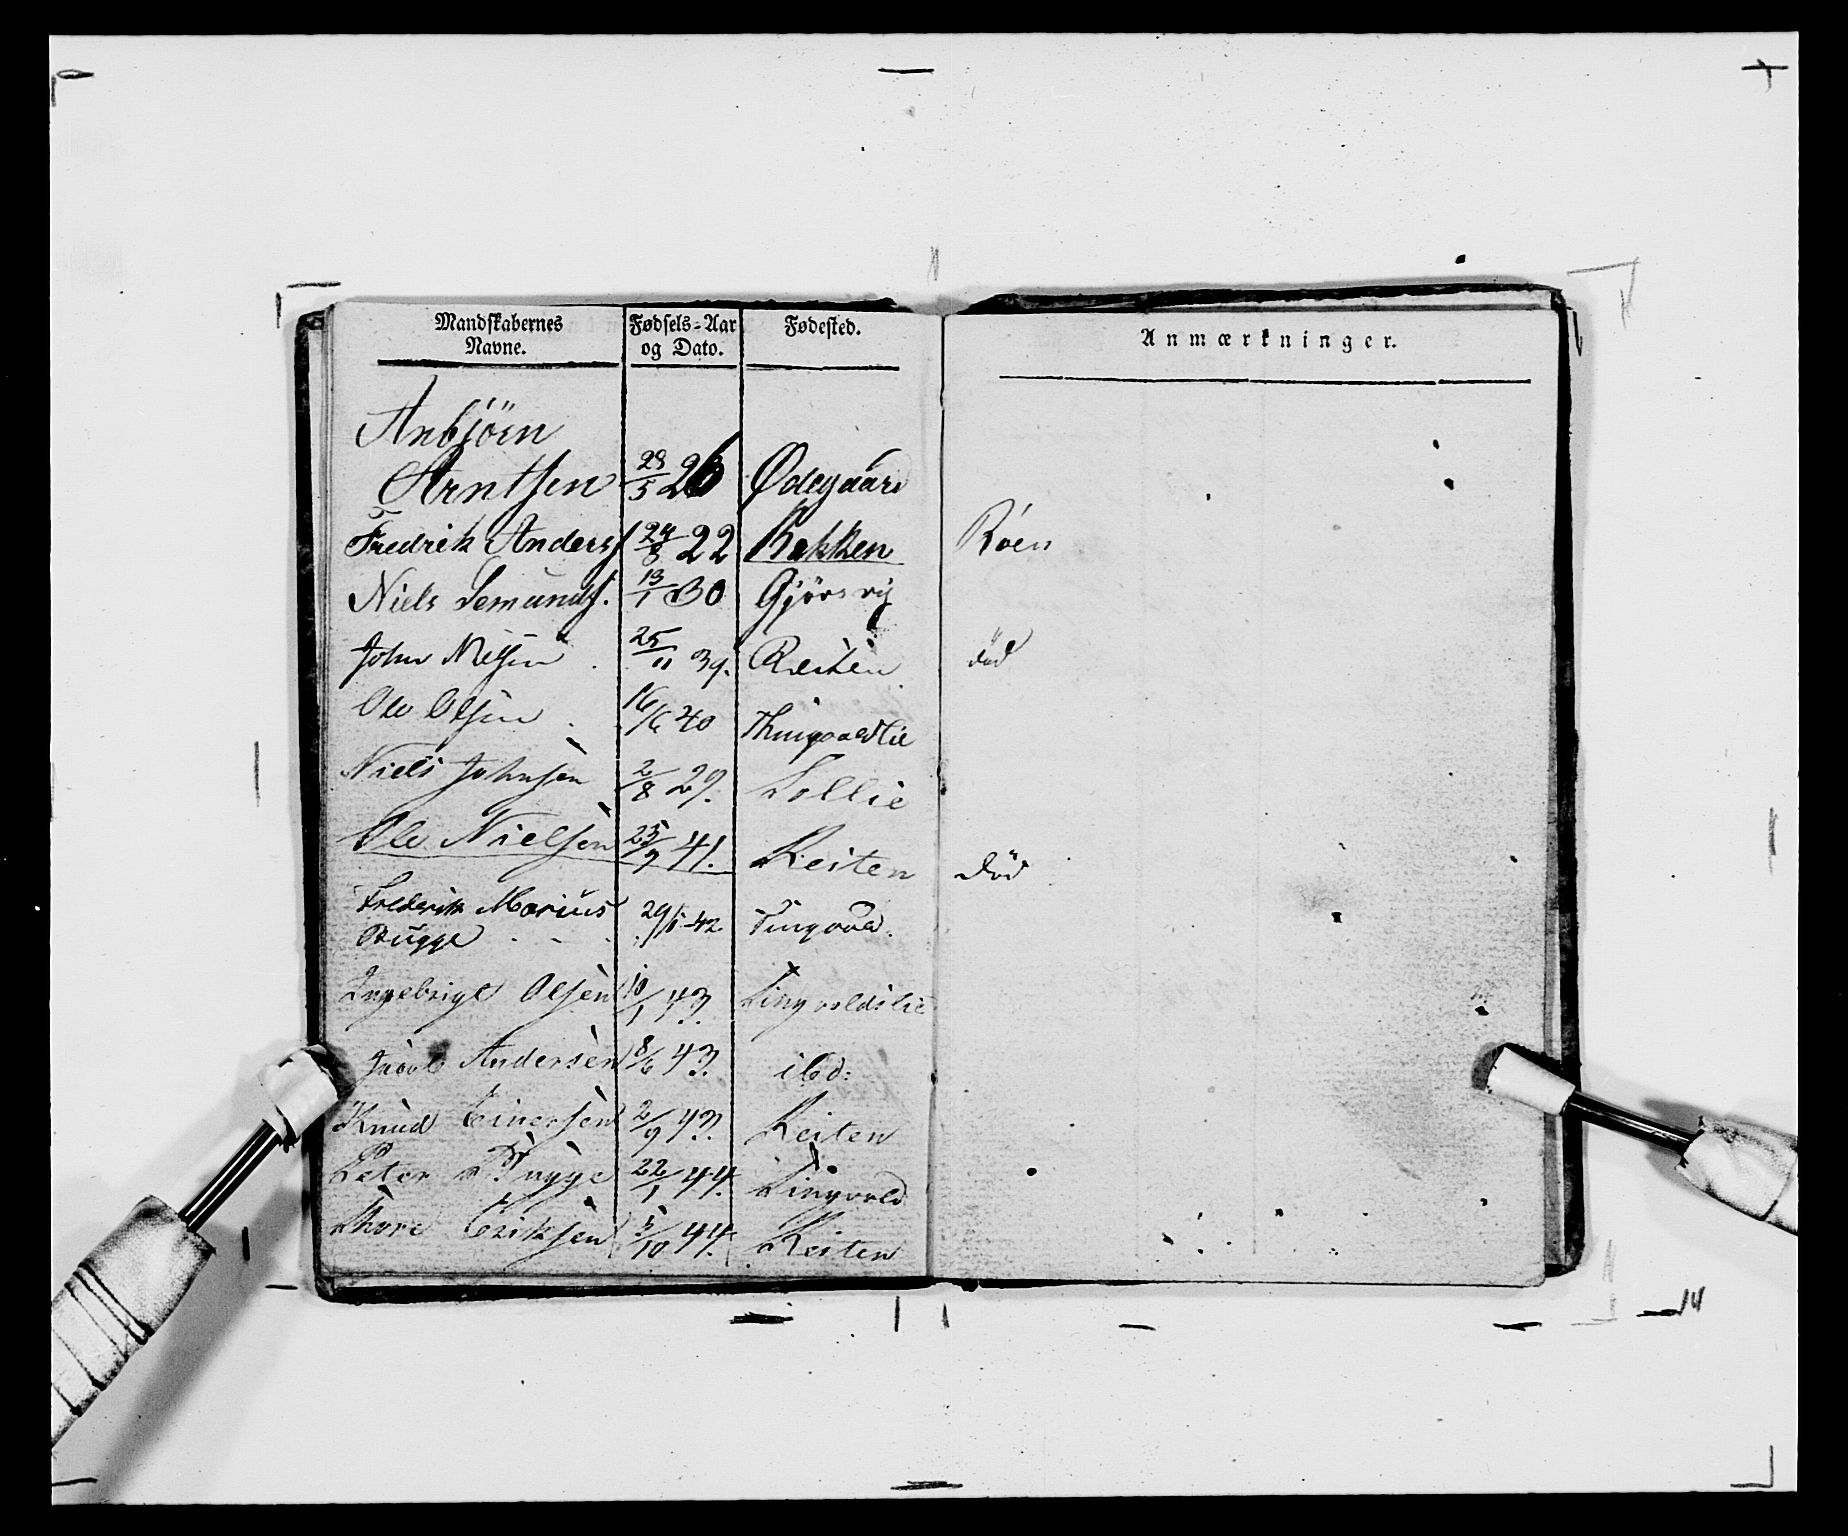 Mandskabernes Navne. Fødsels-Aar og Dato. Fødested. Anmærkninger.
Anbjörn
Arntsen 28/5 26 Ødegaard
Fredrik Anders 24/8 22 Bakken Röen
Niels Semunds. 13/1 30 Gjörsvig
John Nilsen 25/11 39. Reiten död
Ole Olsen 16/6 40 Thingvoldlie
Niels Johnsen 2/8 29. Lollie
Ole Nielsen 25/9 41. Reiten död
Frederik Marius
Bugge 29/1 42 Tingvold.
Ingebrigt Olsen 10/1 43. Tingvoldslie
Jacob Andersen 8/6 43. ibd:
Knud Einersen 2/9 43. Reiten
Peter Bugge 22/1 44. Tingvold
Thore Eriksen 5/10 44. Reiten
14